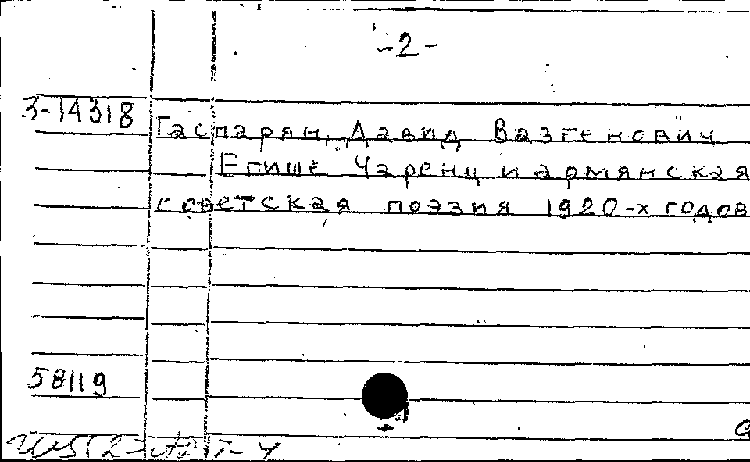 -2-
3-14318
Гаспарян, Давид Вазгенович
Егише Чаренц и армянская
советская поэзия 1920-х годов
58119